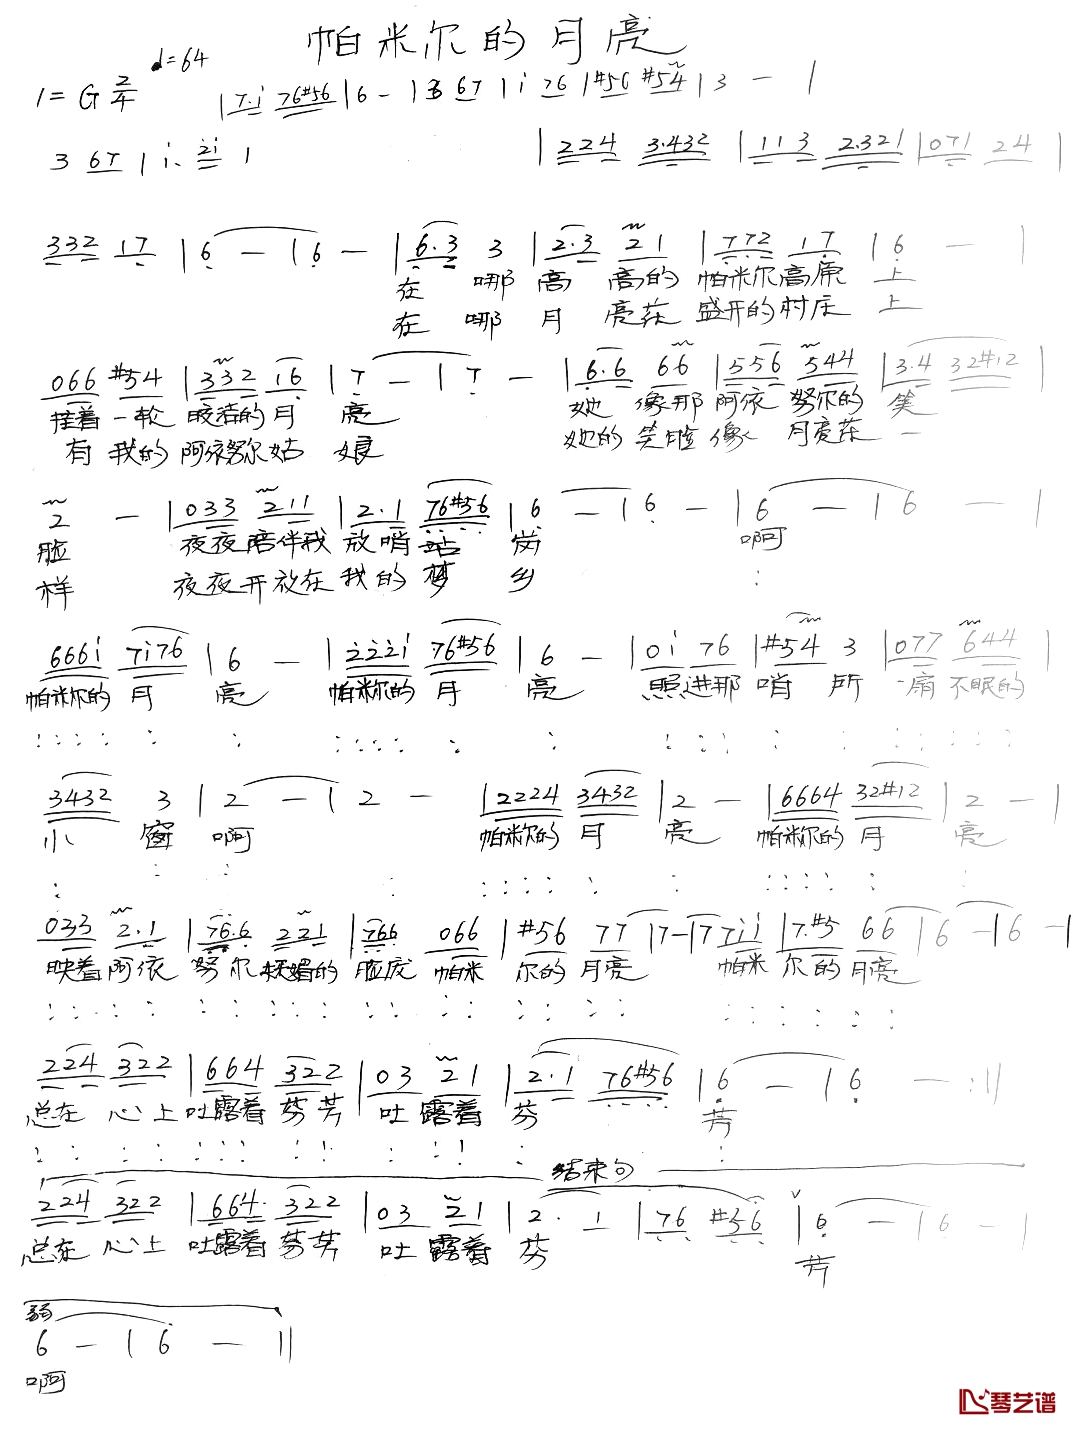 帕米尔的月亮
♩=64
1=G 2/4 | 7.i 76#56 | 6 - | 3 67 | i 76 | #56 #54 | 3 - |
3 67 | i. 2i | | 224 3.432 | 113 2.321 | 071 24 |
332 17 | 6 - | 6 - | 6.3 3 | 2.3 21 | 772 17 | 6 - |
在 哪 高 高的 帕米尔高原 上
在 哪 月 亮花 盛开的村庄 上
066 #54 | 332 16 | 7 - | 7 - | 6.6 66 | 556 544 | 3.4 32#12 |
挂着 一轮 皎洁的 月 亮 她 像那 阿依 努尔的 笑
有 我的 阿依努尔 姑 娘 她的 笑脸 像 月亮花 一
2 - | 033 211 | 2.1 76#56 | 6 - | 6 - | 6 - | 6 - |
脸 夜夜陪伴我 放哨 站 岗 啊
样 夜夜开放在 我的 梦 乡 :
666i 7i76 | 6 - | 222i 76#56 | 6 - | 0i 76 | #54 3 | 077 644 |
帕米尔的 月 亮 帕米尔的 月 亮 照进那 哨 所 一扇 不眠的
3432 3 | 2 - | 2 - | 2224 3432 | 2 - | 6664 32#12 | 2 - |
小 窗 啊 帕米尔的 月 亮 帕米尔的 月 亮
033 2.1 | 76.6 221 | 766 066 | #56 77 | 7 - | 7 7ii | 7.#5 66 | 6 - | 6 - |
映着 阿依 努尔 妩媚的 脸庞 帕米 尔的 月亮 帕米 尔的 月亮
224 322 | 664 322 | 03 21 | 2.1 76#56 | 6 - | 6 - :||
总在 心上 吐露着 芬芳 吐 露着 芬 芳
结束句
224 322 | 664 322 | 03 21 | 2. 1 | 76 #56 | 6 - | 6 - |
总在 心上 吐露着 芬芳 吐 露着 芬 芳
6 - | 6 - ||
啊
琴艺谱